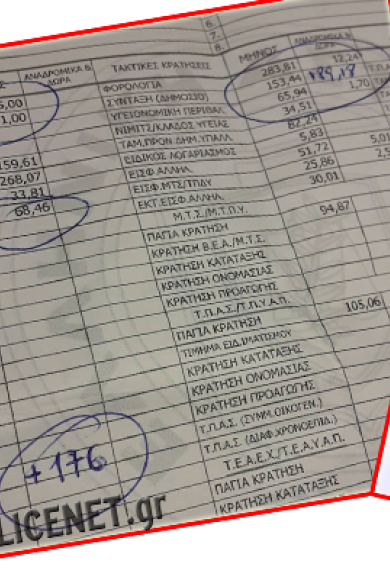 6.
7.
8.
Σ ΑΝΑΔΡΟΜΙΚΑ & ΔΩΡΑ ΤΑΚΤΙΚΕΣ ΚΡΑΤΗΣΕΙΣ ΜΗΝΟΣ ΑΝΑΔΡΟΜΙΚΑ & ΔΩΡΑ
5,00 ΦΟΡΟΛΟΓΙΑ 283,81 12,24
1,00 ΣΥΝΤΑΞΗ (ΔΗΜΟΣΙΟ) 153,44 +89,18
ΥΓΕΙΟΝΟΜΙΚΗ ΠΕΡΙΘΑΛ. 65,94 1,70 Τ.Π.
ΝΙΜΙΤΣ/ΚΛΑΔΟΣ ΥΓΕΙΑΣ 34,51
159,61 ΤΑΜ.ΠΡΟΝ.ΔΗΜ.ΥΠΑΛΛ. 82,24
268,07 ΕΙΔΙΚΟΣ ΛΟΓΑΡΙΑΣΜΟΣ 5,83
33,81 ΕΙΣΦ.ΑΛΛΗΛ. 51,72 5,01
68,46 ΕΙΣΦ.ΜΤΣ/ΤΠΔΥ 25,86 2,5
ΕΚΤ.ΕΙΣΦ.ΑΛΛΗΛ. 30,01
Μ.Τ.Σ./Μ.Τ.Π.Υ.
ΠΑΓΙΑ ΚΡΑΤΗΣΗ 94,87
ΚΡΑΤΗΣΗ Β.Ε.Α./Μ.Τ.Σ.
ΚΡΑΤΗΣΗ ΚΑΤΑΤΑΞΗΣ
ΚΡΑΤΗΣΗ ΟΝΟΜΑΣΙΑΣ
ΚΡΑΤΗΣΗ ΠΡΟΑΓΩΓΗΣ
Τ.Π.Α.Σ./Τ.Π.Υ.Α.Π.
ΠΑΓΙΑ ΚΡΑΤΗΣΗ 105,06
ΤΙΜΗΜΑ ΕΙΔ.ΙΜΑΤΙΣΜΟΥ
ΚΡΑΤΗΣΗ ΚΑΤΑΤΑΞΗΣ
ΚΡΑΤΗΣΗ ΟΝΟΜΑΣΙΑΣ
ΚΡΑΤΗΣΗ ΠΡΟΑΓΩΓΗΣ
Τ.Π.Α.Σ. (ΣΥΜΜ.ΟΙΚΟΓΕΝ.)
Τ.Π.Α.Σ. (ΔΙΑΦ.ΧΡΟΝΟΕΠΙΔ.)
Τ.Ε.Α.Ε.Χ./Τ.Ε.Α.Υ.Α.Π.
ΠΑΓΙΑ ΚΡΑΤΗΣΗ
ΚΡΑΤΗΣΗ ΚΑΤΑΤΑΞΗΣ
+176
LICENET.gr